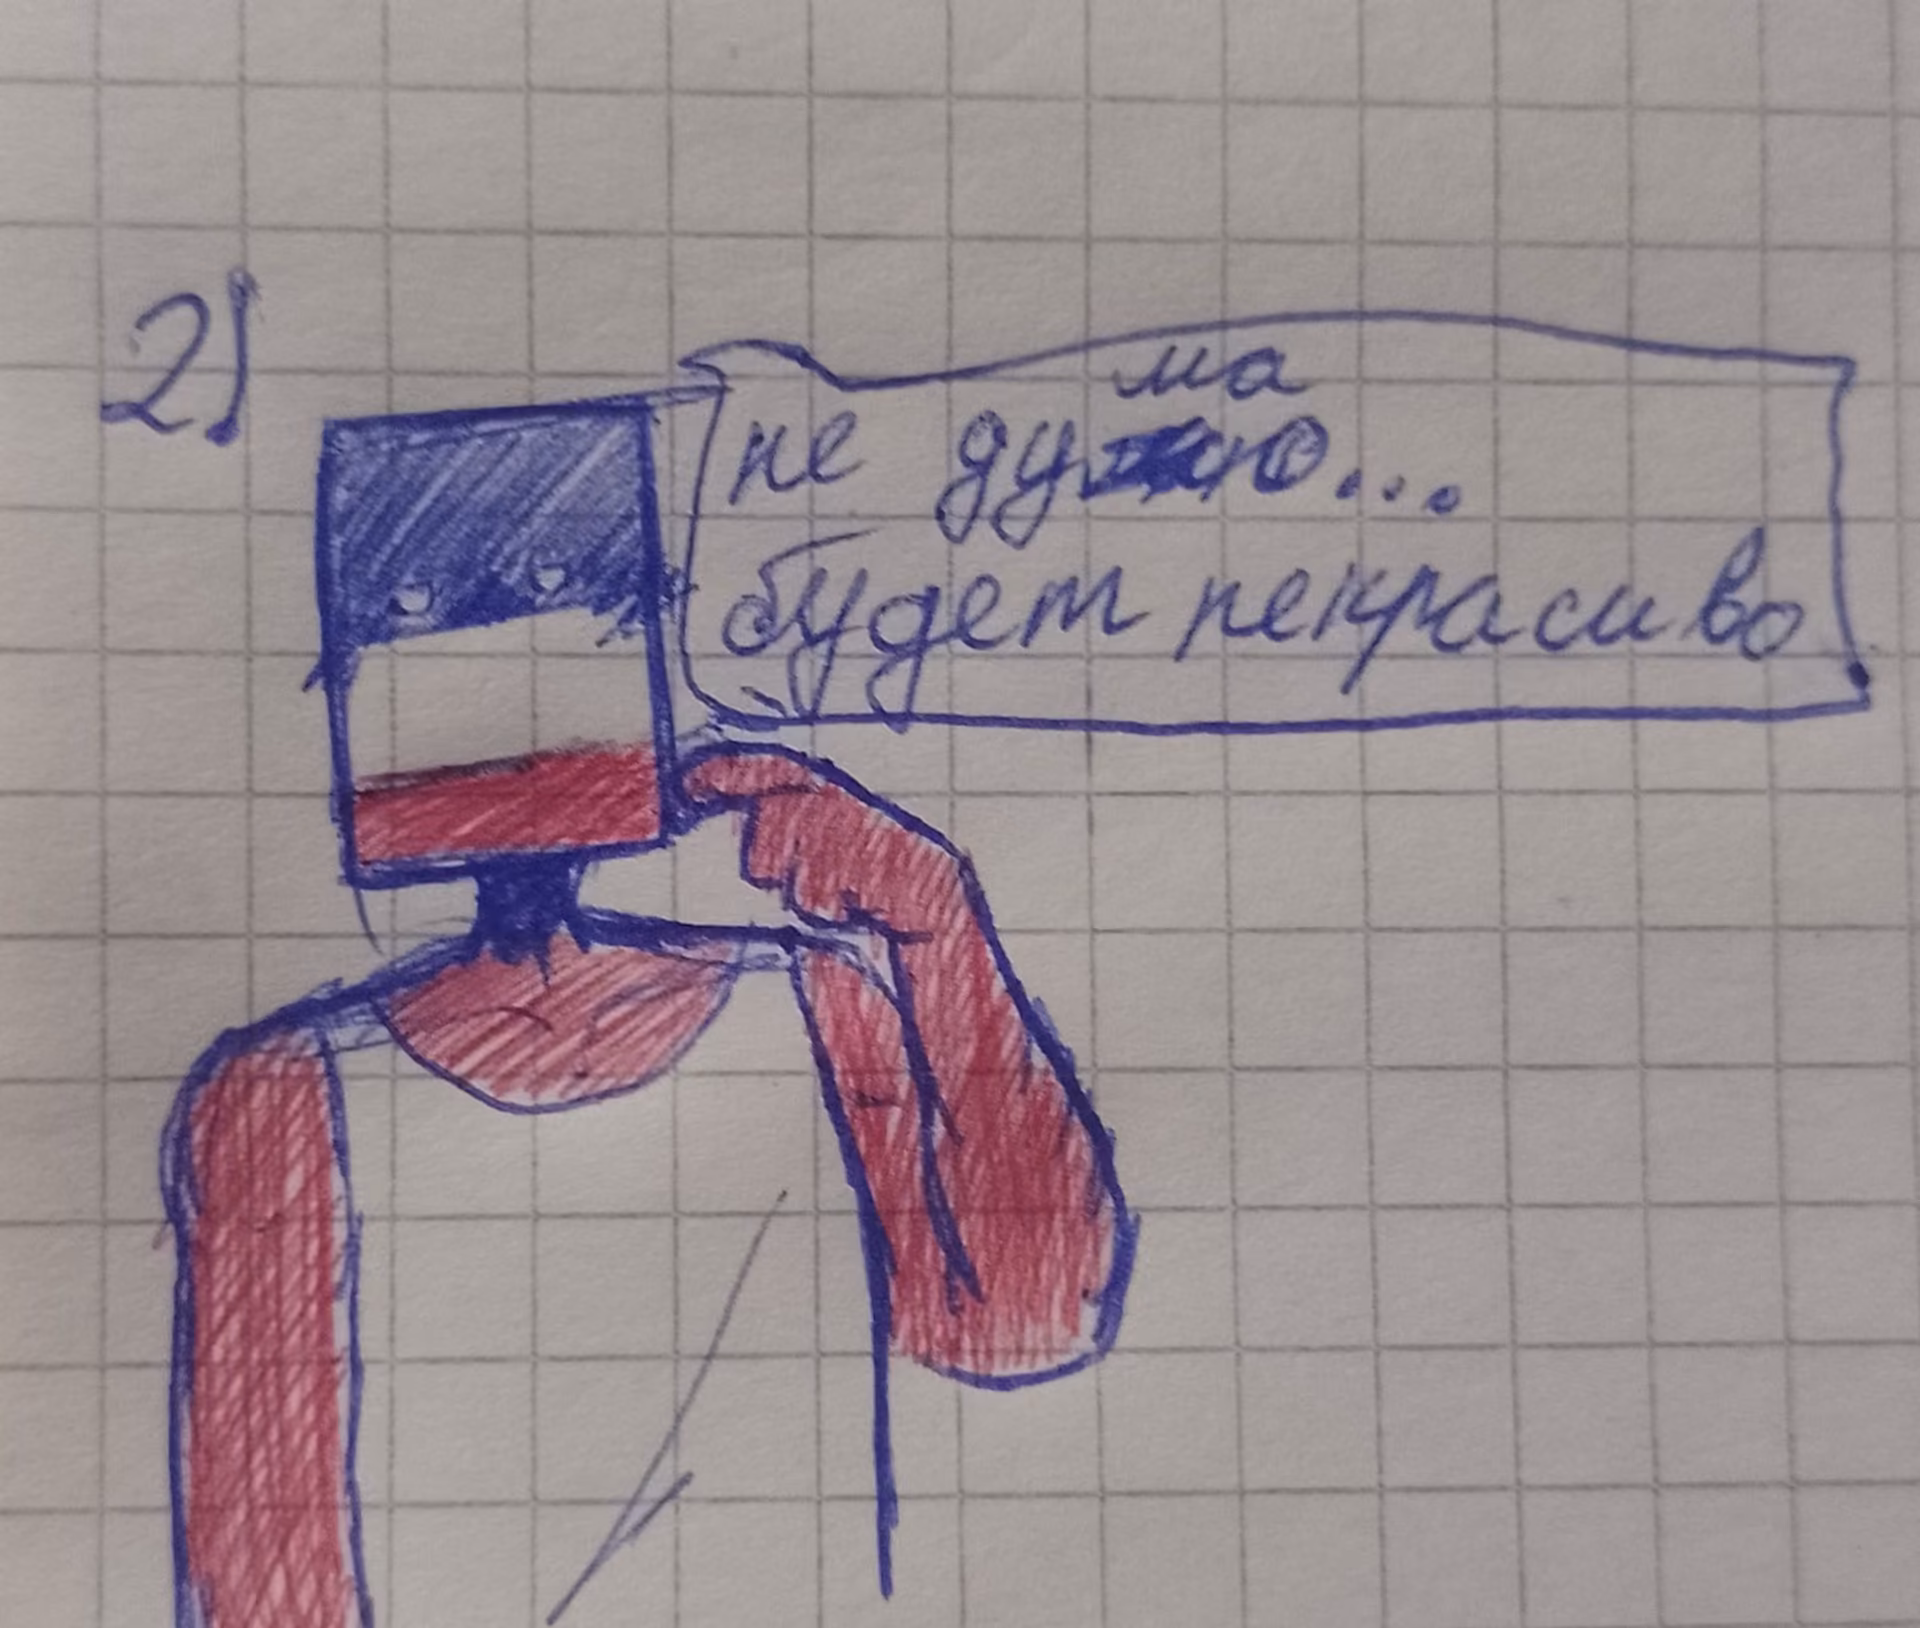 2)
не думаю...
будет некрасиво